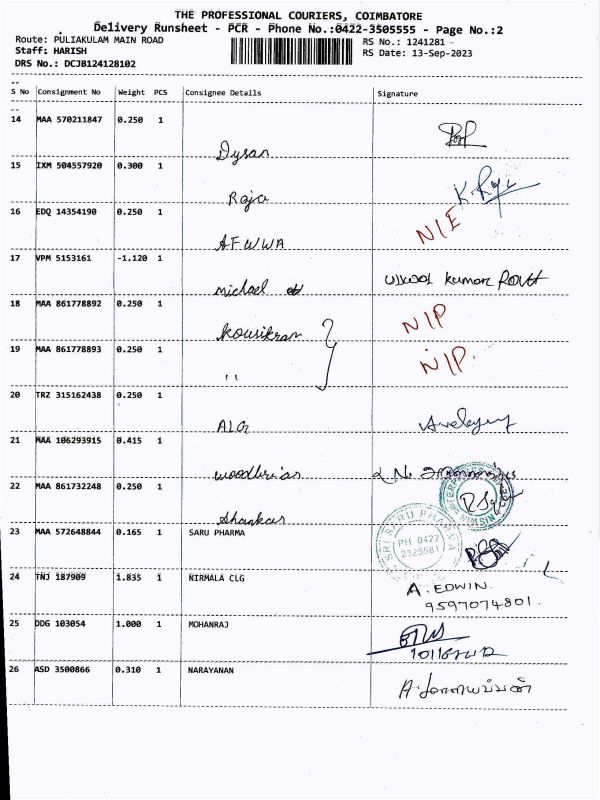 THE PROFESSIONAL COURIERS, COIMBATORE
Delivery Runsheet - PCR - Phone No.:0422-3505555 - Page No.:2
Route: PULIAKULAM MAIN ROAD RS No.: 1241281
Staff: HARISH RS Date: 13-Sep-2023
DRS No.: DCJB124128102
S No Consignment No Weight PCS Consignee Details Signature
14 MAA 570211847 0.250 1
Dysan
15 IXM 504557920 0.300 1
Raja K. Raju
16 EDQ 14354190 0.250 1
AFWWA N/E
17 VPM 5153161 -1.120 1
michael kumar Rout
18 MAA 861778892 0.250 1
kousikran N/P
19 MAA 861778893 0.250 1
" N/P.
20 TRZ 315162438 0.250 1
21 MAA 106293915 0.415 1
22 MAA 861732248 0.250 1
Shankar
23 MAA 572648844 0.165 1 SARU PHARMA
SRI SARU PHARMA
PH 0422
2325981
24 TNJ 187909 1.835 1 NIRMALA CLG
A. EDWIN.
9597074801.
25 DDG 103054 1.000 1 MOHANRAJ
26 ASD 3500866 0.310 1 NARAYANAN